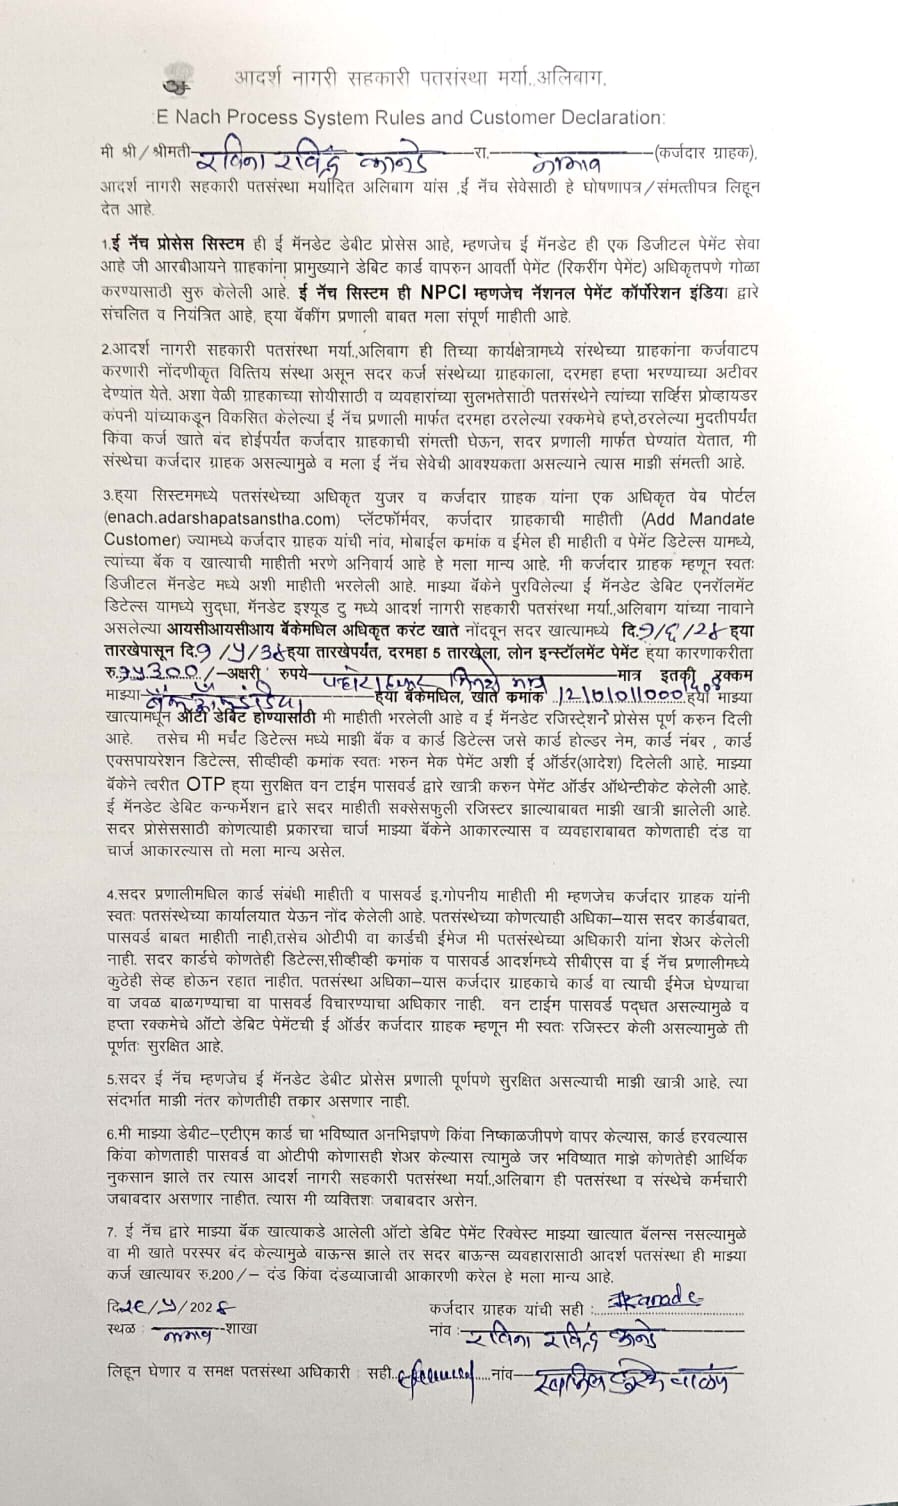 आदर्श नागरी सहकारी पतसंस्था मर्या.,अलिबाग.
E Nach Process System Rules and Customer Declaration:
मी श्री/श्रीमती रविना रविंद्र कानडे रा. (कर्जदार ग्राहक),
आदर्श नागरी सहकारी पतसंस्था मर्यादित अलिबाग यांस ,ई नॅच सेवेसाठी हे घोषणापत्र/संमत्तीपत्र लिहून
देत आहे.
1.ई नॅच प्रोसेस सिस्टम ही ई मॅनडेट डेबीट प्रोसेस आहे, म्हणजेच ई मॅनडेट ही एक डिजीटल पेमेंट सेवा
आहे जी आरबीआयने ग्राहकांना प्रामुख्याने डेबिट कार्ड वापरुन आवर्ती पेमेंट (रिकरींग पेमेंट) अधिकृतपणे गोळा
करण्यासाठी सुरु केलेली आहे. ई नॅच सिस्टम ही NPCI म्हणजेच नॅशनल पेमेंट कॉर्पोरेशन इंडिया द्वारे
संचलित व नियंत्रित आहे, ह्या बॅकींग प्रणाली बाबत मला संपूर्ण माहीती आहे.
2.आदर्श नागरी सहकारी पतसंस्था मर्या.,अलिबाग ही तिच्या कार्यक्षेत्रामध्ये संस्थेच्या ग्राहकांना कर्जवाटप
करणारी नोंदणीकृत वित्तिय संस्था असून सदर कर्ज संस्थेच्या ग्राहकाला, दरमहा हप्ता भरण्याच्या अटीवर
देण्यांत येते. अशा वेळी ग्राहकाच्या सोयीसाठी व व्यवहारांच्या सुलभतेसाठी पतसंस्थेने त्यांच्या सर्व्हिस प्रोव्हायडर
कंपनी यांच्याकडून विकसित केलेल्या ई नॅच प्रणाली मार्फत दरमहा ठरलेल्या रक्कमेचे हप्ते,ठरलेल्या मुदतीपर्यंत
किंवा कर्ज खाते बंद होईपर्यंत कर्जदार ग्राहकाची संमत्ती घेऊन, सदर प्रणाली मार्फत घेण्यांत येतात, मी
संस्थेचा कर्जदार ग्राहक असल्यामुळे व मला ई नॅच सेवेची आवश्यकता असल्याने त्यास माझी संमत्ती आहे.
3.ह्या सिस्टममध्ये पतसंस्थेच्या अधिकृत युजर व कर्जदार ग्राहक यांना एक अधिकृत वेब पोर्टल
(enach.adarshapatsanstha.com) प्लॅटफॉर्मवर, कर्जदार ग्राहकाची माहीती (Add Mandate
Customer) ज्यामध्ये कर्जदार ग्राहक यांची नांव, मोबाईल क्रमांक व ईमेल ही माहीती व पेमेंट डिटेल्स यामध्ये,
त्यांच्या बँक व खात्याची माहीती भरणे अनिवार्य आहे हे मला मान्य आहे. मी कर्जदार ग्राहक म्हणून स्वतः
डिजीटल मॅनडेट मध्ये अशी माहीती भरलेली आहे. माझ्या बँकेने पुरविलेल्या ई मॅनडेट डेबिट एनरॉलमेंट
डिटेल्स यामध्ये सुद्धा, मॅनडेट इश्यूड टु मध्ये आदर्श नागरी सहकारी पतसंस्था मर्या.,अलिबाग यांच्या नावाने
असलेल्या आयसीआयसीआय बँकेमधिल अधिकृत करंट खाते नोंदवून सदर खात्यामध्ये दि.१/६/२४ ह्या
तारखेपासून दि.१/५/३४ ह्या तारखेपर्यंत, दरमहा 5 तारखेला, लोन इन्स्टॉलमेंट पेमेंट ह्या कारणाकरीता
रु.१५३००/-अक्षरी रुपये मात्र इतकी रक्कम
माझ्या बँक ऑफ इंडिया ह्या बँकेमधिल, खाते क्रमांक ह्या माझ्या
खात्यामधून ऑटो डेबिट होण्यासाठी मी माहीती भरलेली आहे व ई मॅनडेट रजिस्ट्रेशन प्रोसेस पूर्ण करुन दिली
आहे. तसेच मी मर्चंट डिटेल्स मध्ये माझी बँक व कार्ड डिटेल्स जसे कार्ड होल्डर नेम, कार्ड नंबर , कार्ड
एक्सपायरेशन डिटेल्स, सीव्हीव्ही क्रमांक स्वतः भरुन मेक पेमेंट अशी ई ऑर्डर(आदेश) दिलेली आहे. माझ्या
बँकेने त्वरीत OTP ह्या सुरक्षित वन टाईम पासवर्ड द्वारे खात्री करुन पेमेंट ऑर्डर ऑथेन्टीकेट केलेली आहे.
ई मॅनडेट डेबिट कन्फर्मेशन द्वारे सदर माहीती सक्सेसफुली रजिस्टर झाल्याबाबत माझी खात्री झालेली आहे.
सदर प्रोसेससाठी कोणत्याही प्रकारचा चार्ज माझ्या बँकेने आकारल्यास व व्यवहाराबाबत कोणताही दंड वा
चार्ज आकारल्यास तो मला मान्य असेल.
4.सदर प्रणालीमधिल कार्ड संबंधी माहीती व पासवर्ड इ.गोपनीय माहीती मी म्हणजेच कर्जदार ग्राहक यांनी
स्वतः पतसंस्थेच्या कार्यालयात येऊन नोंद केलेली आहे. पतसंस्थेच्या कोणत्याही अधिका–यास सदर कार्डबाबत,
पासवर्ड बाबत माहीती नाही,तसेच ओटीपी वा कार्डची ईमेज मी पतसंस्थेच्या अधिकारी यांना शेअर केलेली
नाही. सदर कार्डचे कोणतेही डिटेल्स,सीव्हीव्ही क्रमांक व पासवर्ड आदर्शमध्ये सीबीएस वा ई नॅच प्रणालीमध्ये
कुठेही सेव्ह होऊन रहात नाहीत. पतसंस्था अधिका–यास कर्जदार ग्राहकाचे कार्ड वा त्याची ईमेज घेण्याचा
वा जवळ बाळगण्याचा वा पासवर्ड विचारण्याचा अधिकार नाही. वन टाईम पासवर्ड पद्धत असल्यामुळे व
हप्ता रक्कमेचे ऑटो डेबिट पेमेंटची ई ऑर्डर कर्जदार ग्राहक म्हणून मी स्वतः रजिस्टर केली असल्यामुळे ती
पूर्णतः सुरक्षित आहे.
5.सदर ई नॅच म्हणजेच ई मॅनडेट डेबीट प्रोसेस प्रणाली पूर्णपणे सुरक्षित असल्याची माझी खात्री आहे. त्या
संदर्भात माझी नंतर कोणतीही तक्रार असणार नाही.
6.मी माझ्या डेबीट–एटीएम कार्ड चा भविष्यात अनभिज्ञपणे किंवा निष्काळजीपणे वापर केल्यास, कार्ड हरवल्यास
किंवा कोणताही पासवर्ड वा ओटीपी कोणासही शेअर केल्यास त्यामुळे जर भविष्यात माझे कोणतेही आर्थिक
नुकसान झाले तर त्यास आदर्श नागरी सहकारी पतसंस्था मर्या.,अलिबाग ही पतसंस्था व संस्थेचे कर्मचारी
जबाबदार असणार नाहीत. त्यास मी व्यक्तिशः जबाबदार असेन.
7. ई नॅच द्वारे माझ्या बँक खात्याकडे आलेली ऑटो डेबिट पेमेंट रिक्वेस्ट माझ्या खात्यात बॅलन्स नसल्यामुळे
वा मी खाते परस्पर बंद केल्यामुळे बाऊन्स झाले तर सदर बाऊन्स व्यवहारासाठी आदर्श पतसंस्था ही माझ्या
कर्ज खात्यावर रु.200/– दंड किंवा दंडव्याजाची आकारणी करेल हे मला मान्य आहे.
दि.२९/५/202४ कर्जदार ग्राहक यांची सही : Rkanade
स्थळ : शाखा नांव : रविना रविंद्र कानडे
लिहून घेणार व समक्ष पतसंस्था अधिकारी : सही. नांव–